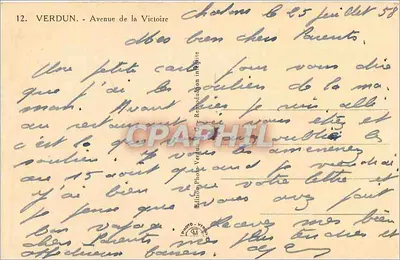 12. VERDUN. - Avenue de la Victoire
Chalons le 25 juillet 58
Mes bien chers Parents.
Une petite carte pour vous dire
que j'ai les souliers de la ma-
man. Avant hier je suis allé
au restaurant où vous étiez et
c'est là que oublié les
souliers. Je vous les amènerez
au 15 août quand je viendrai
j'ai bien reçu votre lettre et
je pense que vous avez fait
bon voyage. Recevez mes bien
chers Parents mes plus tendres et
affectueux baisers.
CPARAPHIL